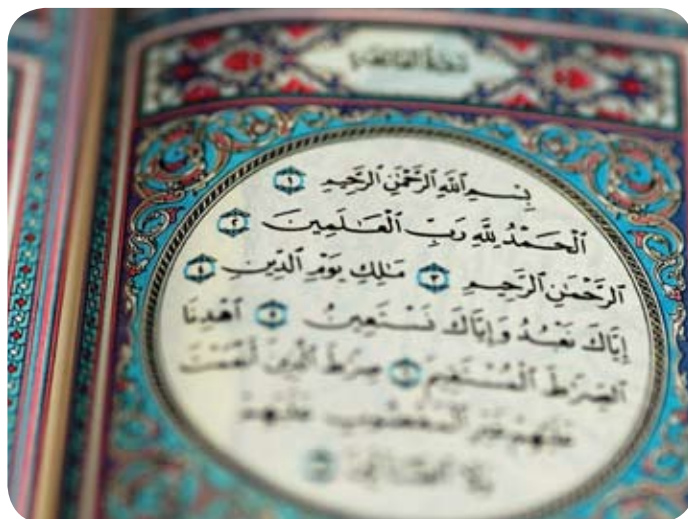 سورة الفاتحة
بِسْمِ ٱللَّهِ ٱلرَّحْمَٰنِ ٱلرَّحِيمِ ١
ٱلْحَمْدُ لِلَّهِ رَبِّ ٱلْعَٰلَمِينَ ٢
ٱلرَّحْمَٰنِ ٱلرَّحِيمِ ٣ مَٰلِكِ يَوْمِ ٱلدِّينِ ٤
إِيَّاكَ نَعْبُدُ وَإِيَّاكَ نَسْتَعِينُ ٥ ٱهْدِنَا
ٱلصِّرَٰطَ ٱلْمُسْتَقِيمَ ٦ صِرَٰطَ ٱلَّذِينَ أَنْعَمْتَ
عَلَيْهِمْ غَيْرِ ٱلْمَغْضُوبِ عَلَيْهِمْ
وَلَا ٱلضَّآلِّينَ